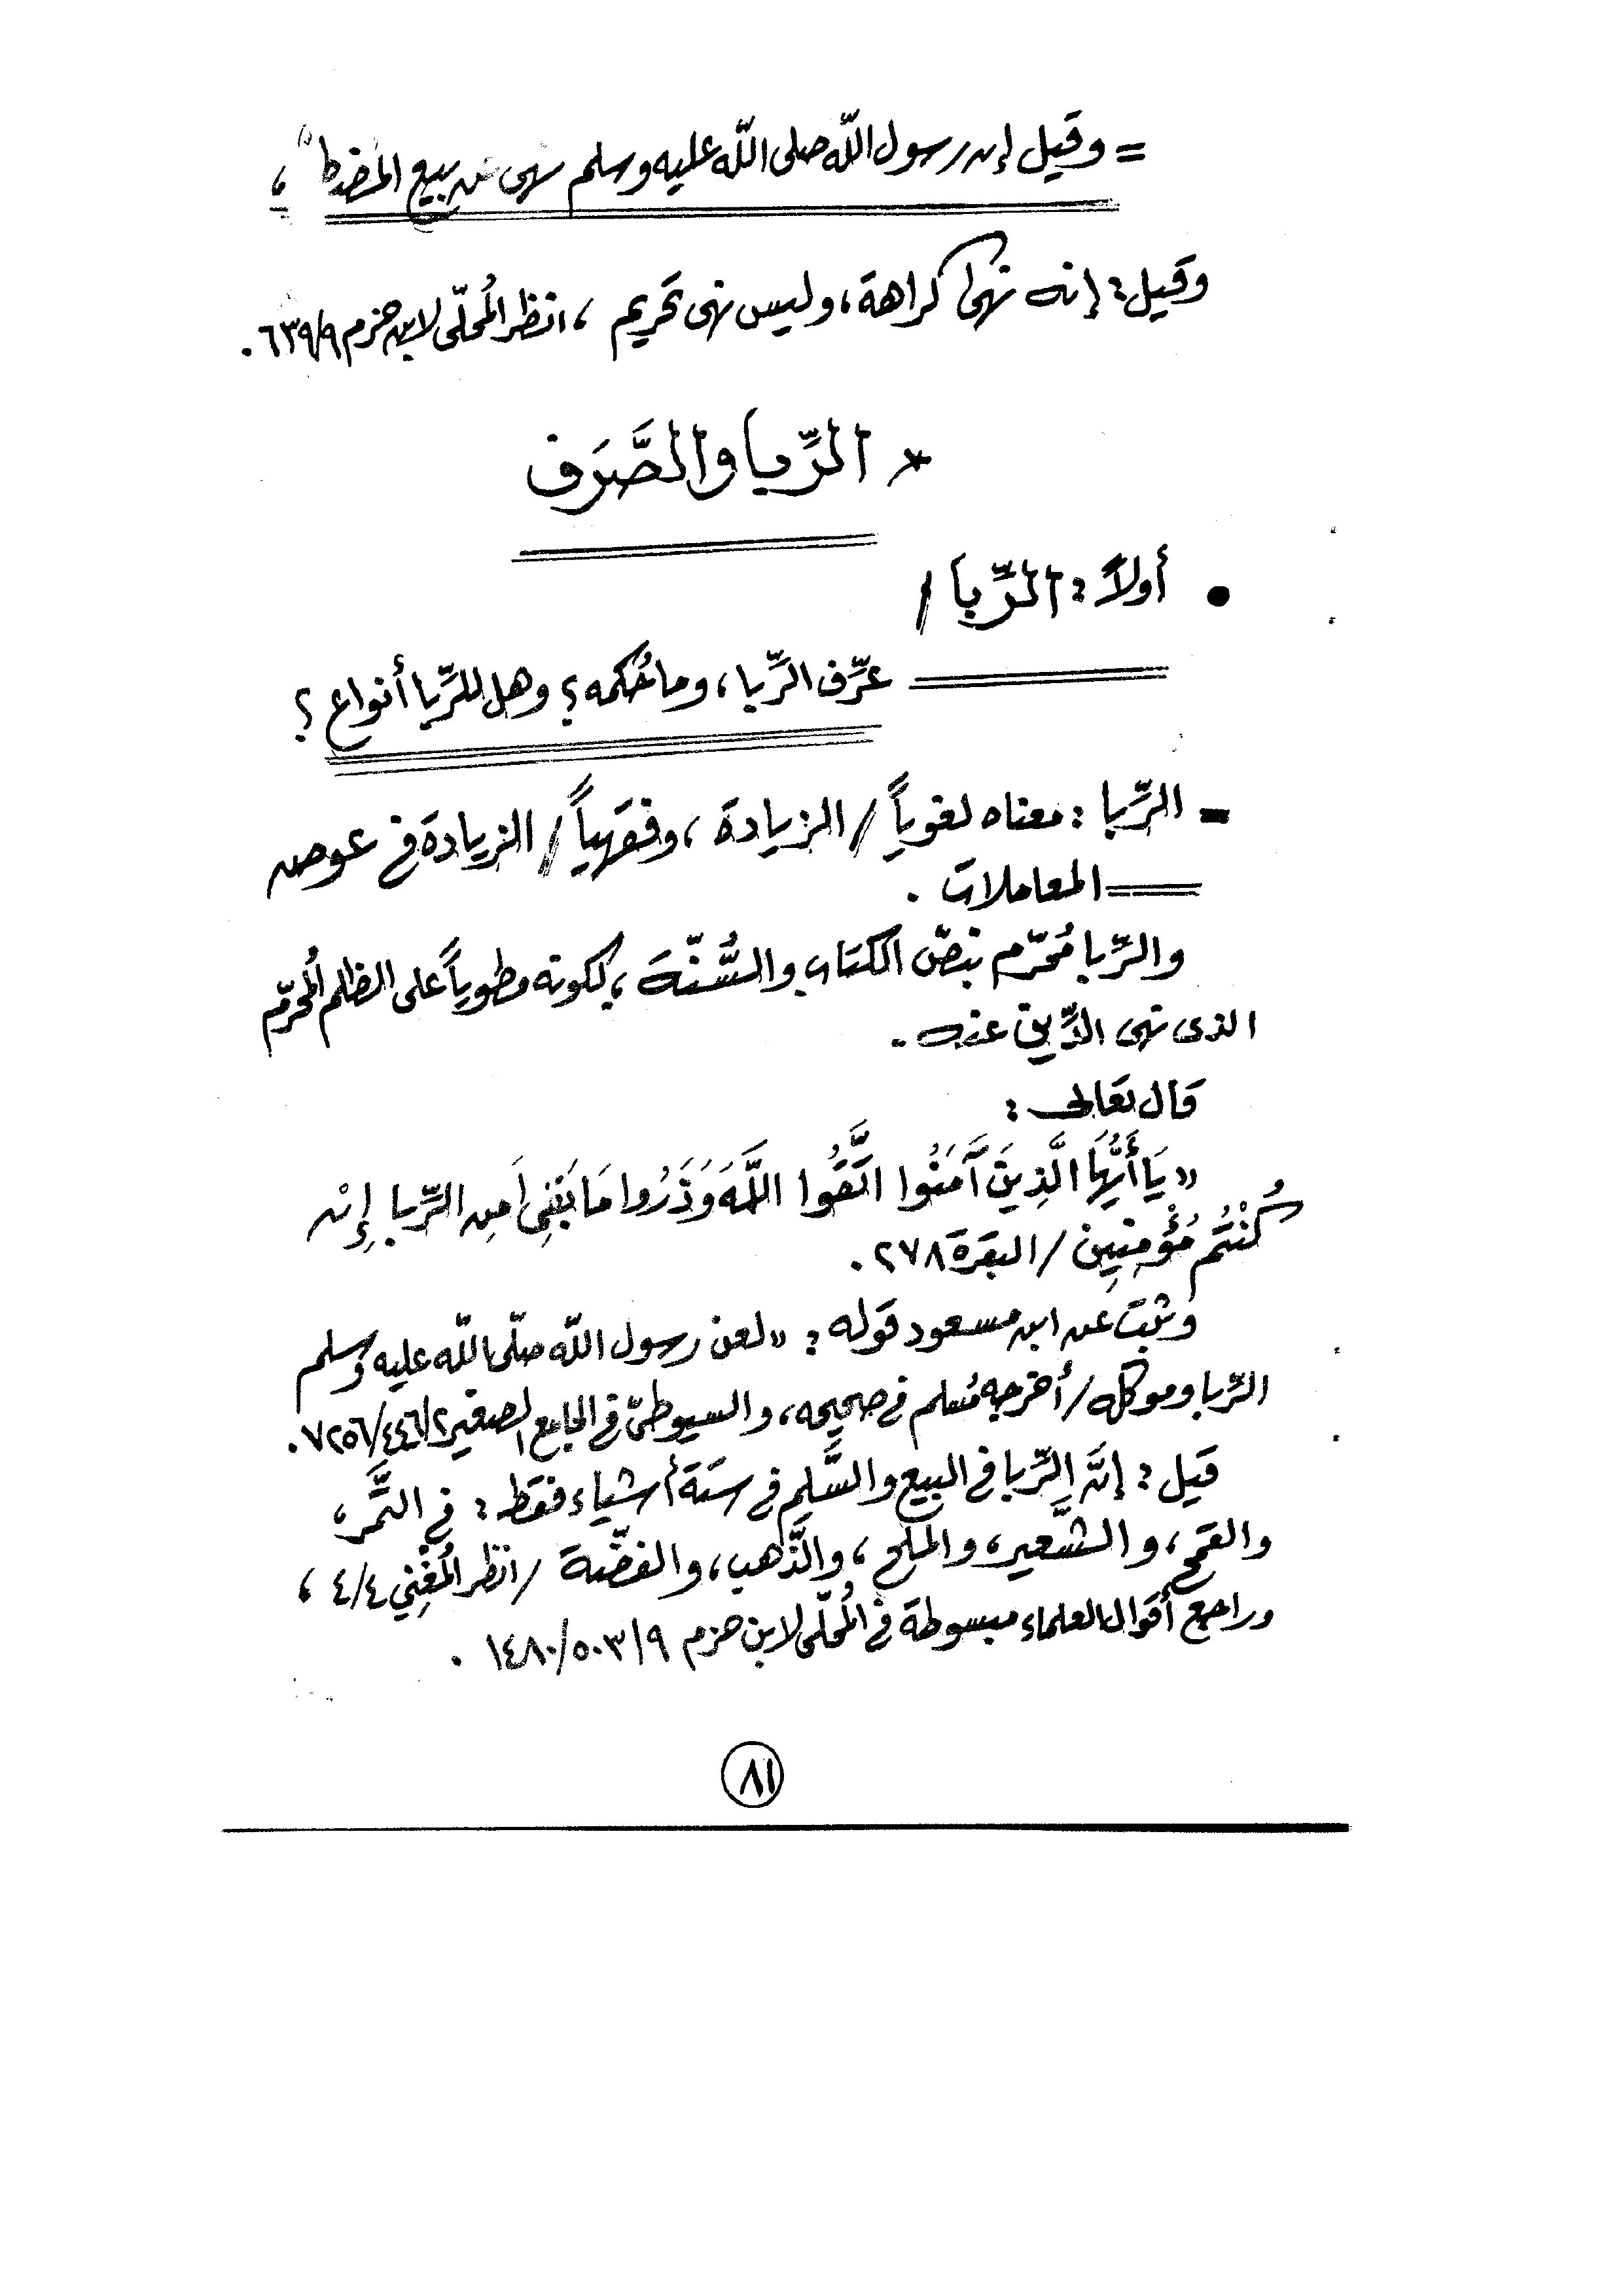 = وقيل إن رسول الله صلى الله عليه وسلم نهى عن بيع المضطر،
وقيل: إنه نهى كراهة، وليس نهى تحريم، انظر المحلّى لابن حزم ٦٣٩/٩.
* الرِّبا والصَّرَف
• أولاً: الرِّبا /
عرِّف الرِّبا، وما حُكمه؟ وهل للرِّبا أنواع؟
= الرِّبا: معناه لغوياً / الزيادة، وفقهياً / الزيادة في عوض
المعاملات.
والرِّبا مُحرّم بنصّ الكتاب والسُّنّة، لكونه مطوياً على الظلم المُحرّم
الذى نهى الدِّين عنه.
قال تعالى:
«يَا أَيُّهَا الَّذِينَ آمَنُوا اتَّقُوا اللَّهَ وَذَرُوا مَا بَقِىَ مِن الرِّبا إِنْ
كُنْتُم مُؤْمِنِين / البقرة ٢٧٨.
وثبت عن ابن مسعود قوله: «لعن رسول الله صلّى الله عليه وسلم
الرِّبا وموكله / أخرجه مُسلم في صحيحه، والسيوطىّ في الجامع الصغير ٧٢٥٦/٤٤٦/٢.
قيل: إنَّ الرِّبا في البيع والسَّلَم في ستة أشياء فقط: في التَّمر،
والقمح، والشَّعير، والملح، والذَّهب، والفضّة / انظر المُغْنِي ٤/٤،
وراجع أقوال العلماء مبسوطة في المُحلّى لابن حزم ١٤٨٠/٥٠٣/٩.
٨١